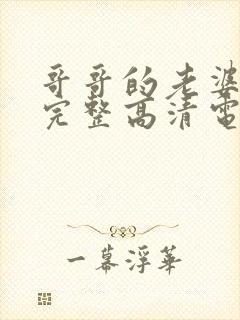 哥哥的老婆
完整高清電
一幕浮華